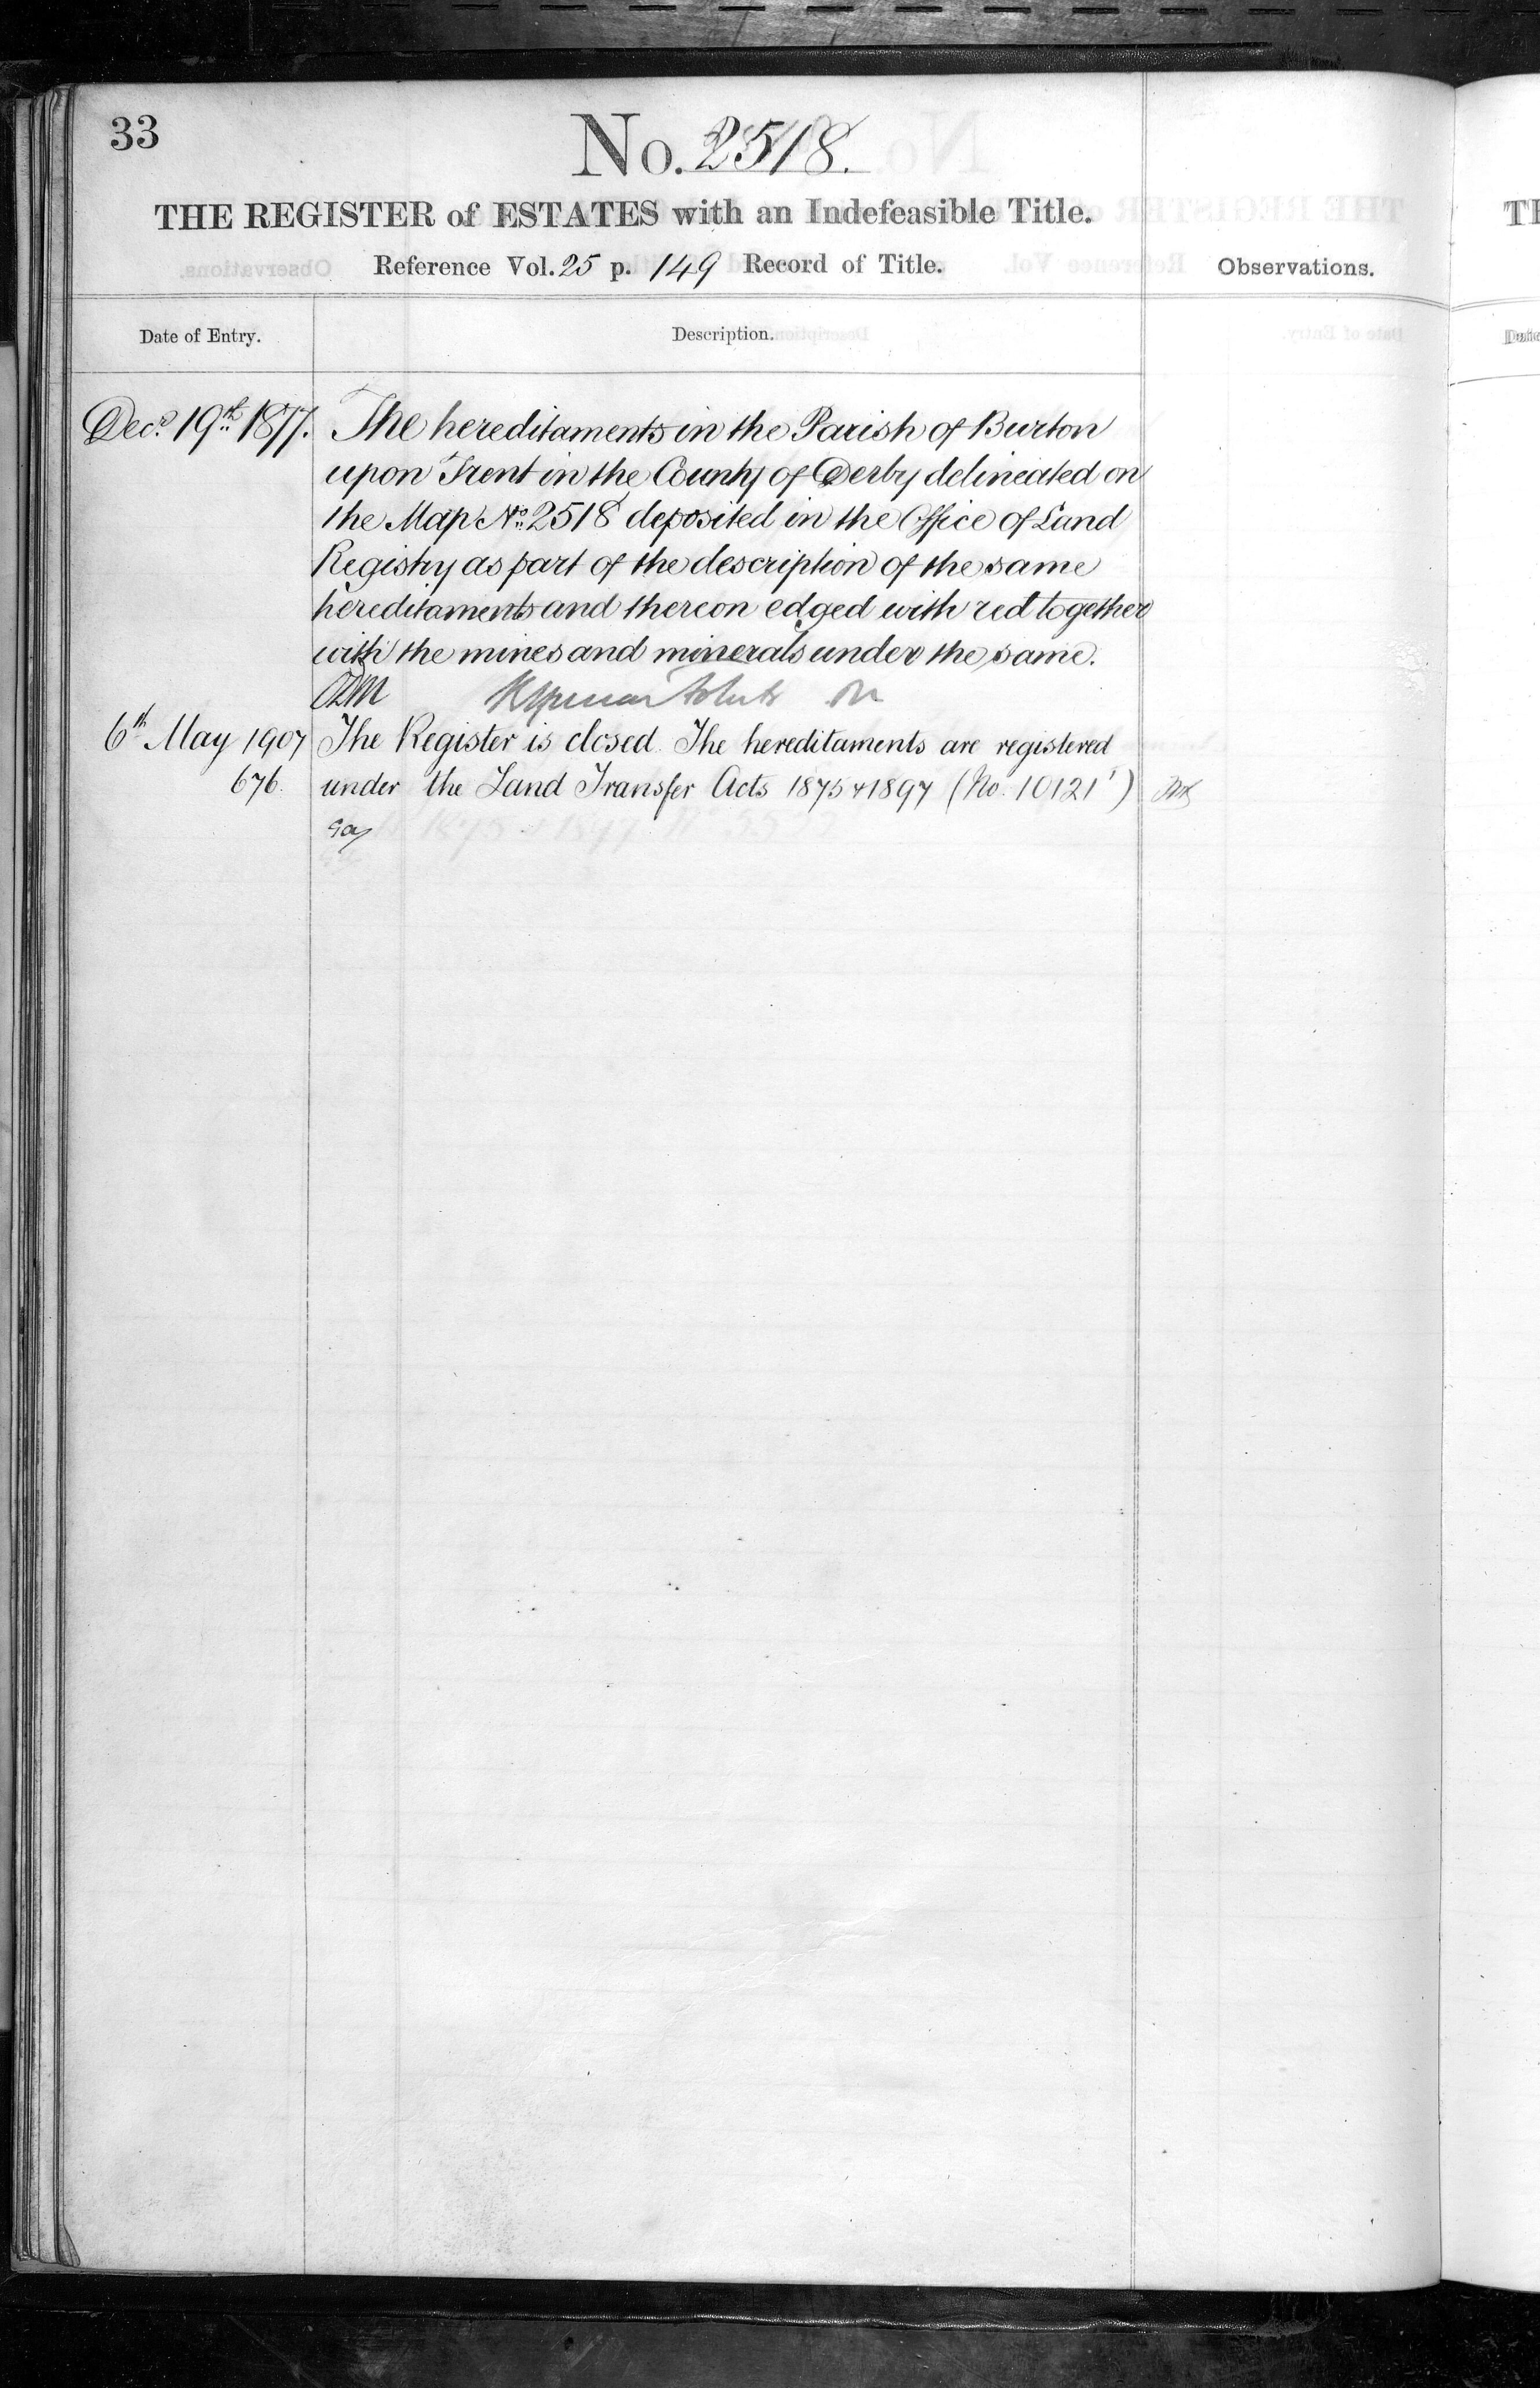 33
No. 2518.
THE REGISTER of ESTATES with an Indefeasible Title.
Reference Vol. 25 p. 149 Record of Title.
Observations.
Date of Entry.
Description.
Decr. 19th 1877. The hereditaments in the Parish of Burton
upon Trent in the County of Derby delineated on
the Map No. 2518 deposited in the Office of Land
Registry as part of the description of the same
hereditaments and thereon edged with red together
with the mines and minerals under the same.
6th May 1907 The Register is closed. The hereditaments are registered
676. under the Land Transfer Acts 1875 & 1897 (No. 10121')